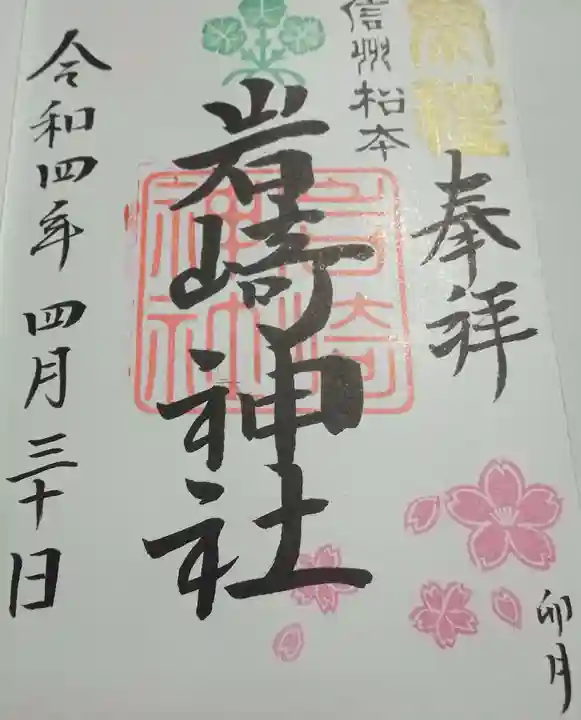 奉拝
信州松本
岩崎神社
岩崎
神社
令和四年 四月 三十日
卯月